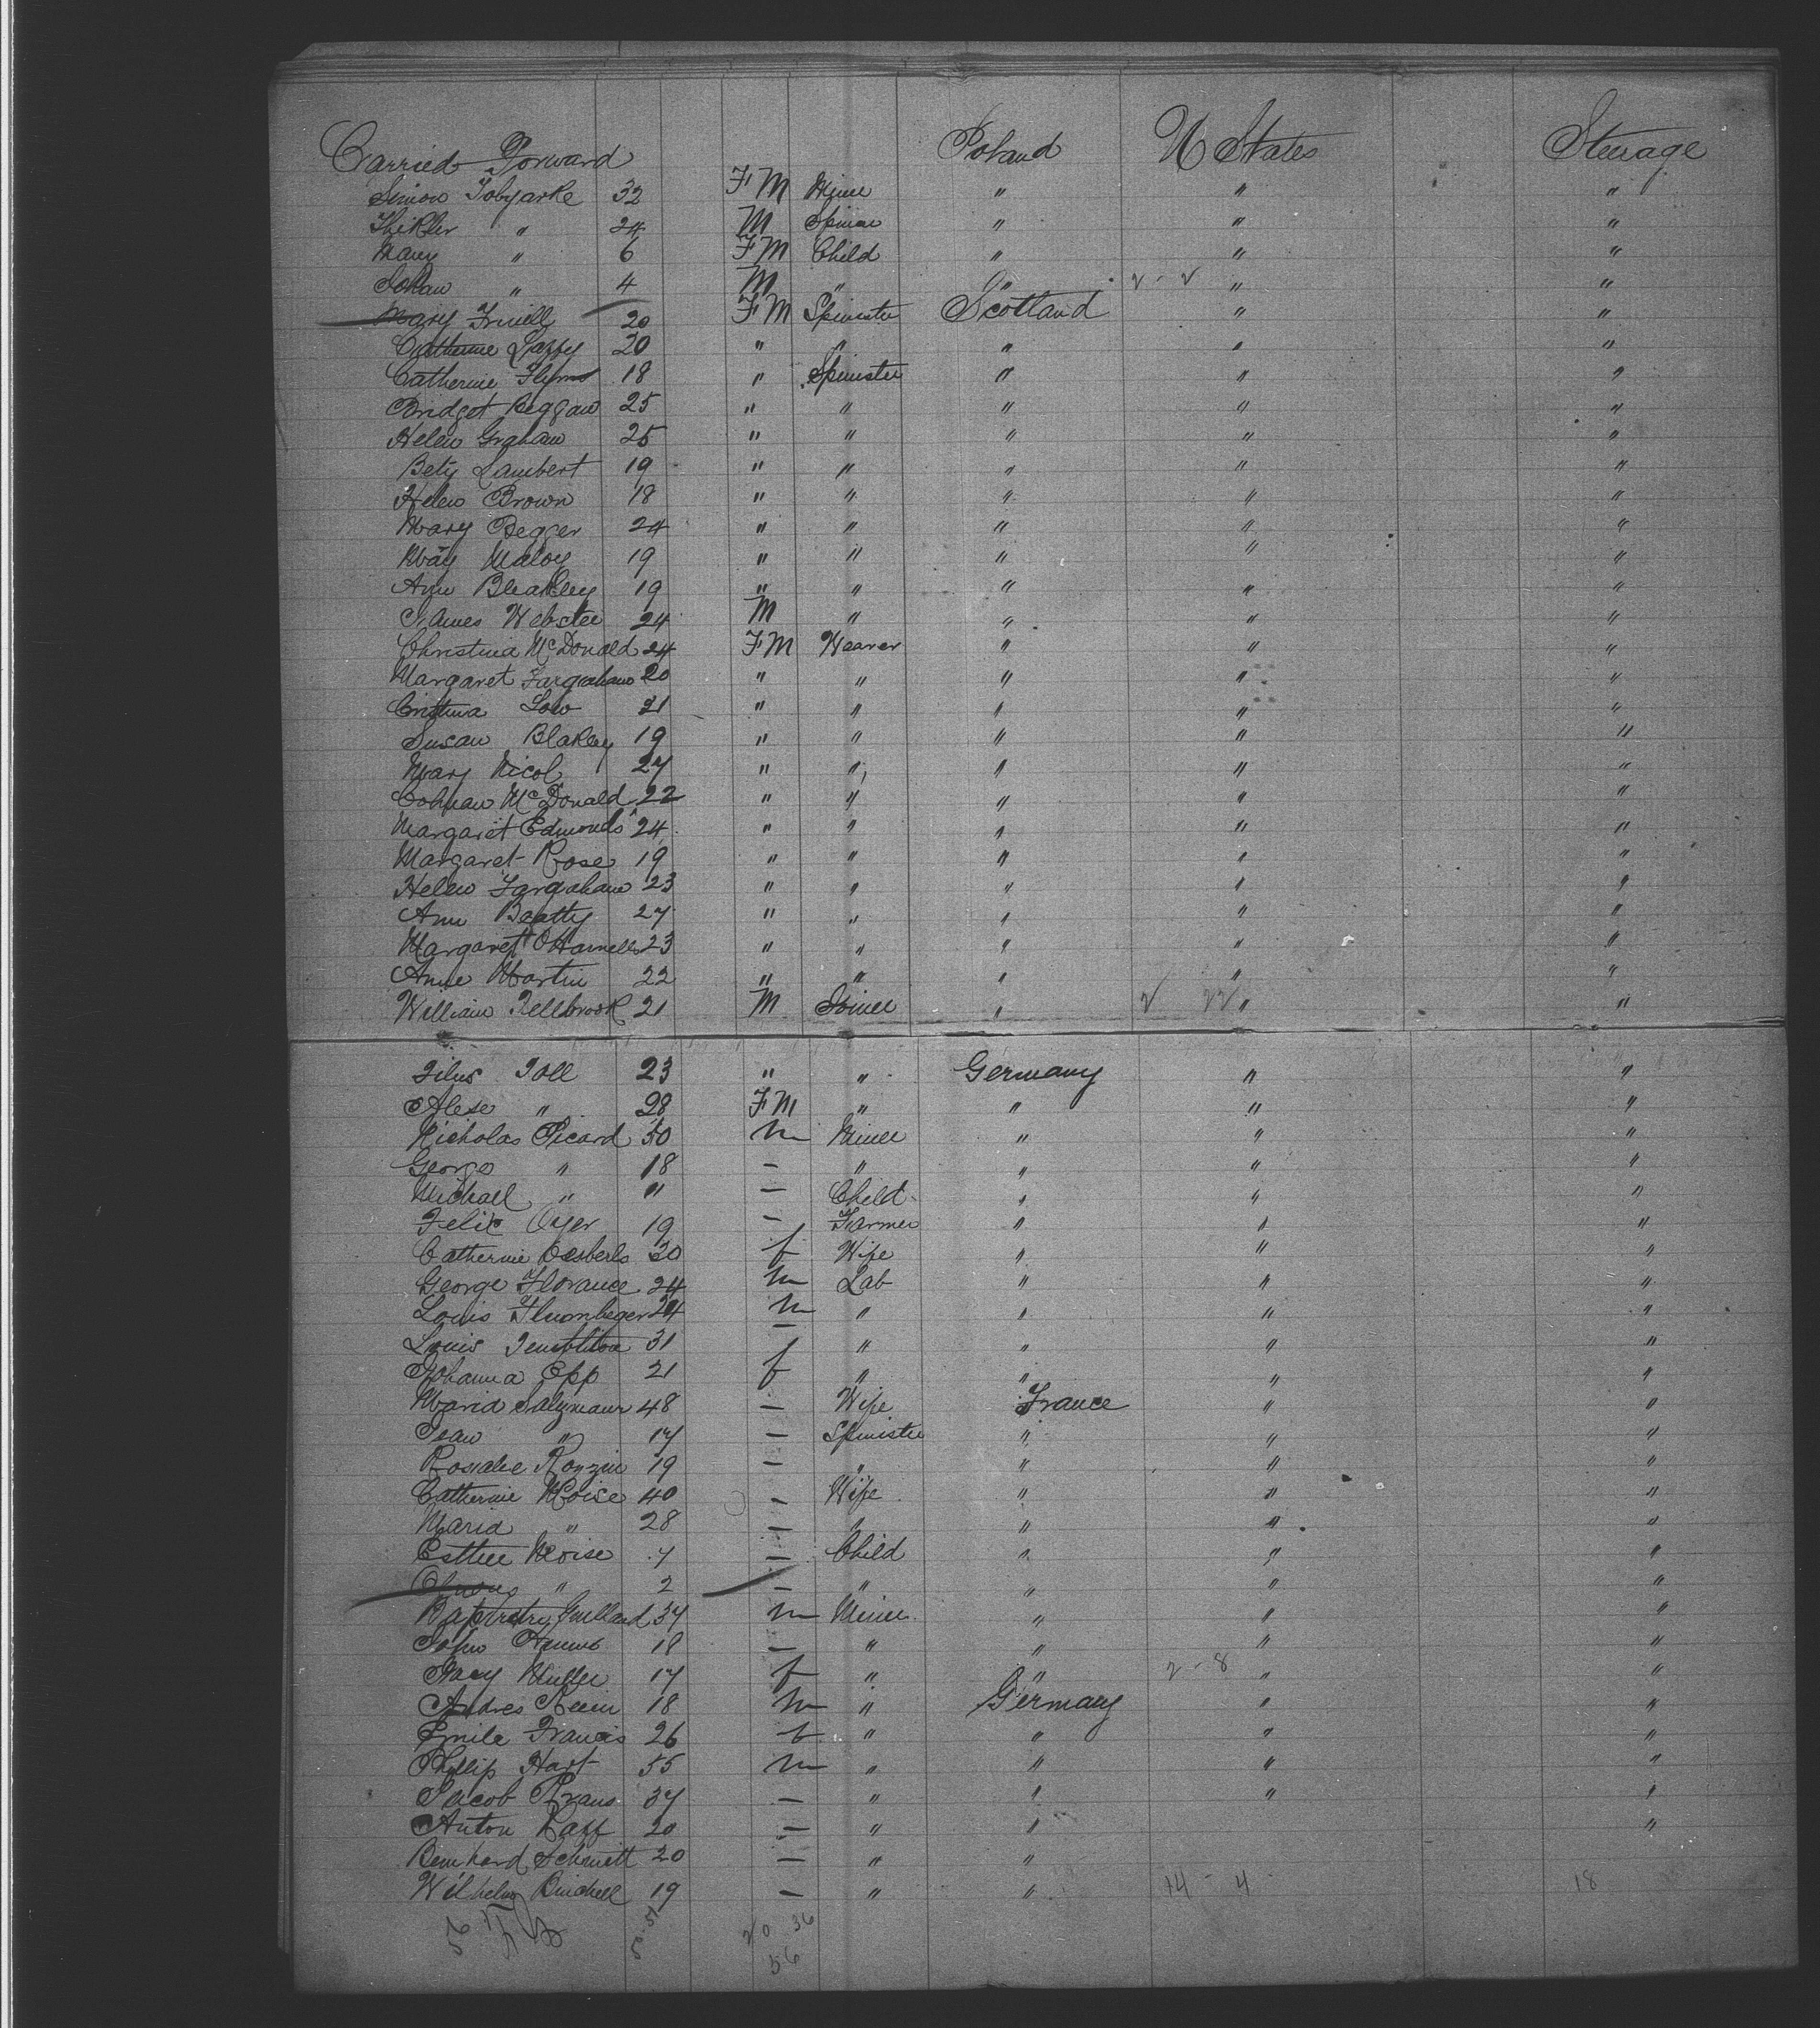 Carried Forward Poland U States Steerage
Simon Tobyarke 32 F M Miner " " "
" 24 M " " "
Mary " 6 F M Child " " "
Johan " 4 M " " 2 - 2 " "
Mary 20 F M Spinster Scotland " "
Catherine 20 " " " " "
Catherine Flynn 18 " Spinster " " "
Bridget Beggan 25 " " " " "
Helen Graham 25 " " " " "
Bety Lambert 19 " " " " "
Helen Brown 18 " " " " "
Mary Begger 24 " " " " "
May Maloy 19 " " " " "
Ann Bleakley 19 " " " " "
James Webster 24 M " " " "
Christina McDonald 24 F M Weaver " " "
Margaret Farquhane 20 " " " " "
Cristina Low 21 " " " " "
Susan Blakey 19 " " " " "
Mary Nicol 27 " " " " "
McDonald 22 " " " " "
Margaret Edmonds 24 " " " " "
Margaret Rose 19 " " " " "
Helen Farquhane 23 " " " " "
Ann Beatty 27 " " " " "
Margaret 23 " " " " "
Anne Martin 22 " " " " "
William Fellbrook 21 M Joiner " 2 22 " "
Toll 23 " " Germany " "
" 28 F M " " " "
Nicholas Picard 50 m Miner " " "
George " 18 – " " " "
Michael " 11 – Child " " "
Felix Oyer 19 – Farmer " " "
Catherine 30 f Wife " " "
George Florance 24 m Lab " " "
Louis Flurnbeger 24 m " " " "
Louis 31 – " " " "
Johanna Epp 21 f " " " "
Maria Salzmann 48 – Wife France " "
Jean " 17 – Spinster " " "
Rosalie 19 – " " " "
Catherine Moise 40 – Wife " " "
Maria " 28 – " " " "
Esther Moise 7 – Child " " "
" 2 – " " " "
37 m Miner " " "
John 18 – " " " "
Mary Muller 17 f " " 2 - 8 " "
Andres 18 m " Germany " "
Emile Francis 26 f " " " "
Phillip Hart 55 m " " " "
Jacob Kraus 37 – " " " "
Anton 20 – " " "
Bernhard Schmitt 20 – " "
Wilhelm 19 – " " 14 - 4 18
20 36
56